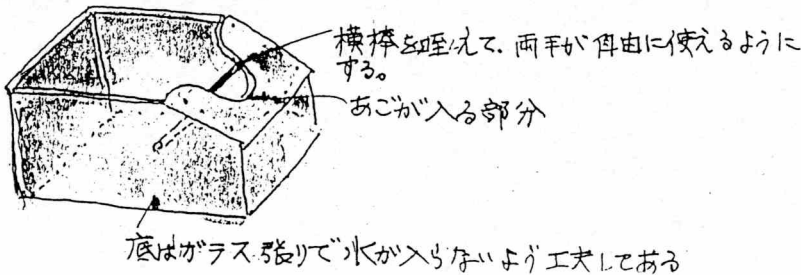 横棒を咥えて、両手が自由に使えるように
する。
あごが入る部分
底はガラス張りで水が入らないよう工夫してある